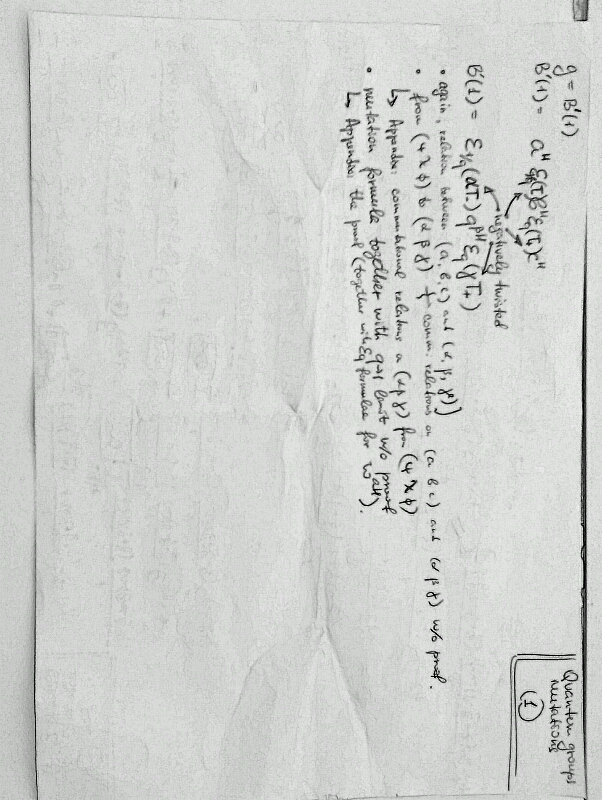 Quantum groups
mutations
(1)
g = B'(1)
B'(1) = a^H ℰ_q(T_-) b^H ℰ_q(T_+) c^H
negatively twisted
B'(1) = ℰ_{1/q}(αT_-) q^{βH} ℰ_q(γT_+)
• again, relation between (a, b, c) and (α, β, γ)]
• from (ψ χ φ) to (α β γ) + comm. relations on (a b c) and (α β γ) w/o proof.
↳ Appendix: commutational relations on (α β γ) from (ψ χ φ)
• mutation formula together with q→1 limit w/o proof
↳ Appendix: the proof (together with ℰq formulae for